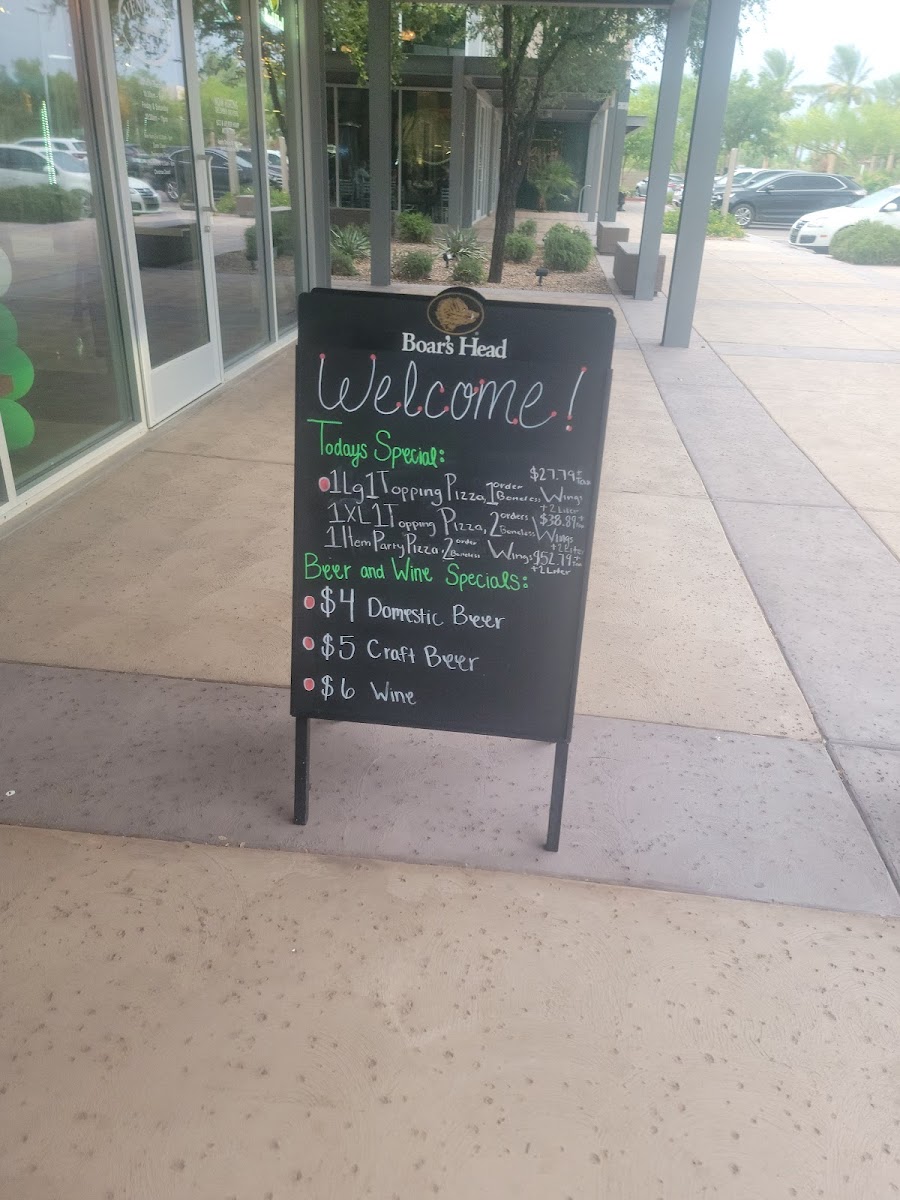 Boar's Head
Welcome!
Todays Special:
$27.79 + Tax
1 Lg 1 Topping Pizza, 1 order Boneless Wings
+ 2 Liter
1 XL 1 Topping Pizza, 2 orders Boneless Wings $38.89 + Tax
+ 2 Liter
1 Item Party Pizza, 2 order Boneless Wings $52.79 + Tax
+ 2 Liter
Beer and Wine Specials:
$4 Domestic Beer
$5 Craft Beer
$6 Wine